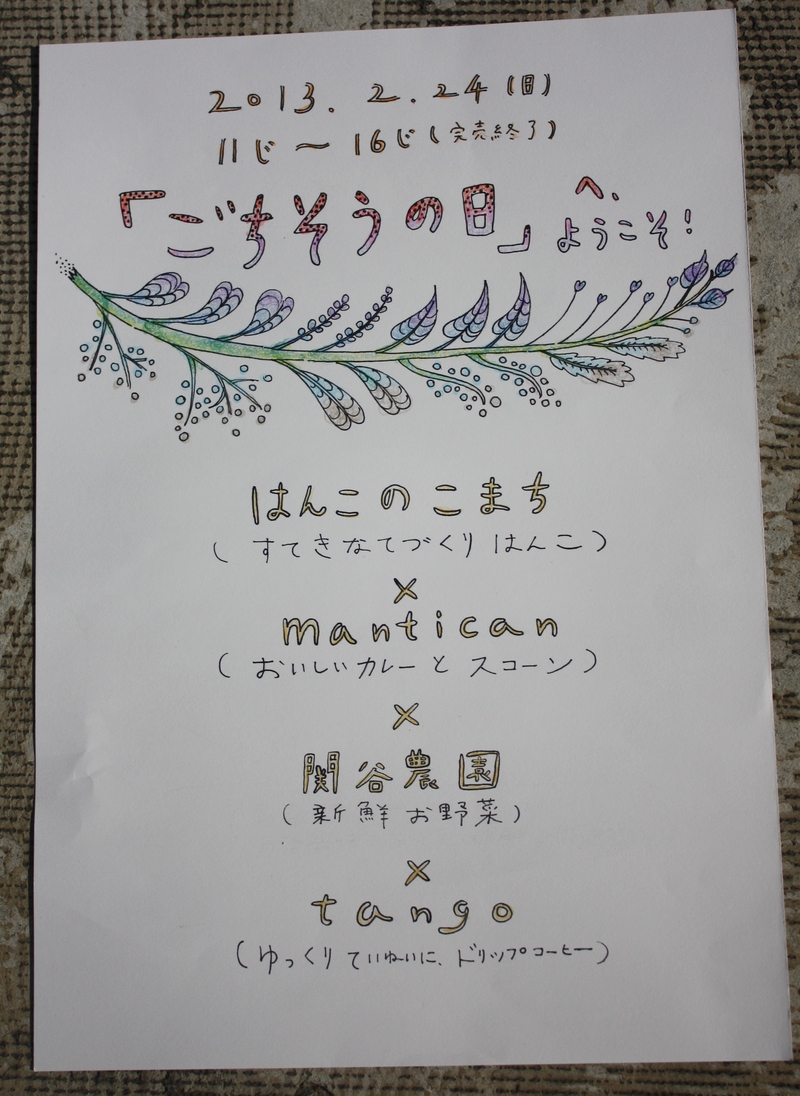 2013. 2. 24 (日)
11じ 〜 16じ (完売終了)
「ごちそうの日」へ、ようこそ!
はんこのこまち
( すてきなてづくり はんこ )
×
mantican
( おいしいカレーと スコーン )
×
関谷農園
( 新鮮お野菜 )
×
tango
( ゆっくり ていねいに、ドリップコーヒー )